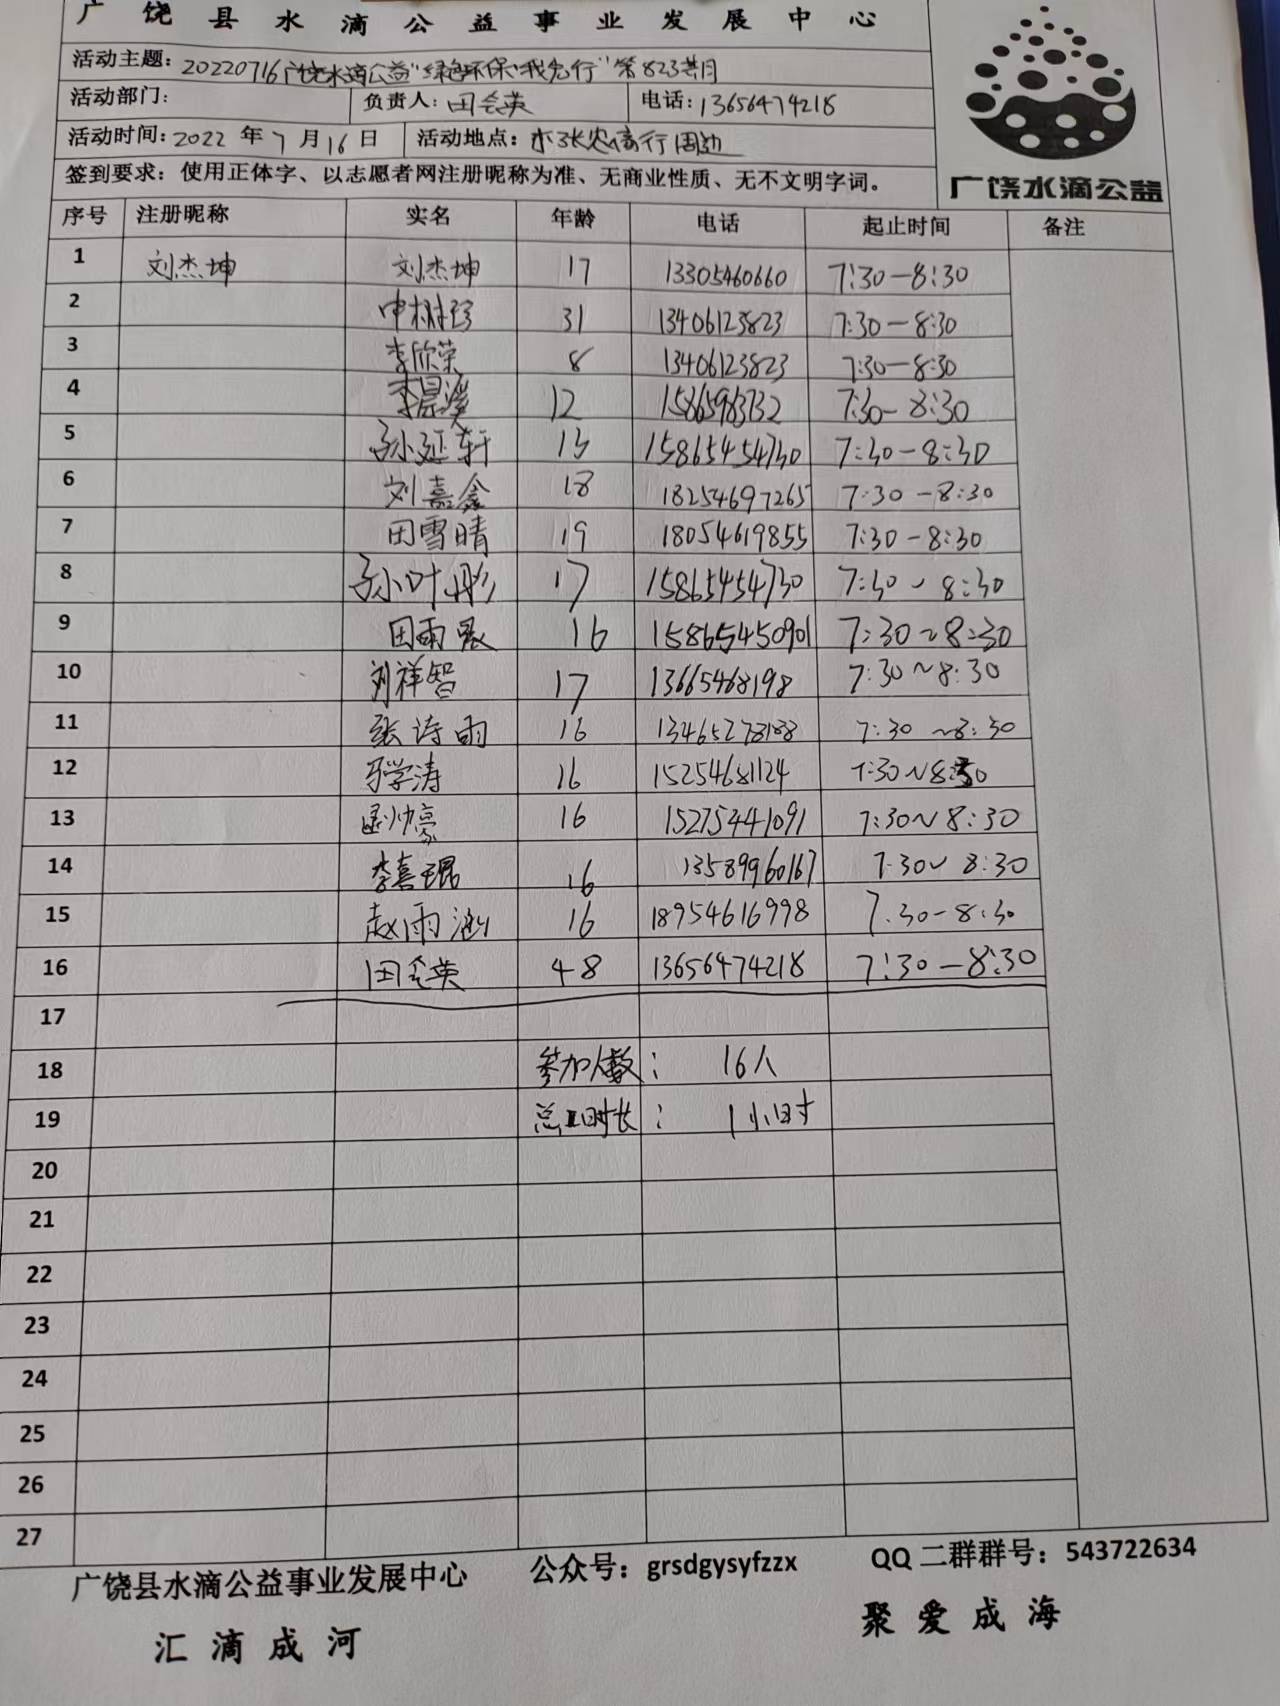 广饶县水滴公益事业发展中心
活动主题：20220716广饶水滴公益"绿色环保·我先行"第823期
活动部门： 负责人：田会英 电话：13656474218
活动时间：2022年7月16日 活动地点：农商行周边
签到要求：使用正体字、以志愿者网注册昵称为准、无商业性质、无不文明字词。
广饶水滴公益
序号 注册昵称 实名 年龄 电话 起止时间 备注
1 刘杰坤 刘杰坤 17 13305460660 7:30-8:30
2 申树珍 31 13406123823 7:30-8:30
3 李欣荣 8 13406123823 7:30-8:30
4 李晨溪 12 15865983732 7:30-8:30
5 孙延轩 13 15865454730 7:30-8:30
6 刘嘉鑫 18 18254697265 7:30-8:30
7 田雪晴 19 18054619855 7:30-8:30
8 孙叶彤 17 15865454730 7:30~8:30
9 田雨 16 15865450901 7:30~8:30
10 刘祥智 17 13665468198 7:30~8:30
11 张诗雨 16 13465278188 7:30~8:30
12 马学涛 16 15254681124 7:30~8:30
13 帅豪 16 15275441091 7:30~8:30
14 李嘉琨 16 13589960167 7:30~8:30
15 赵雨涵 16 18954616998 7:30-8:30
16 田会英 48 13656474218 7:30-8:30
17
18 参加人数： 16人
19 总工时长： 1小时
20
21
22
23
24
25
26
27
广饶县水滴公益事业发展中心 公众号：grsdgysyfzzx QQ二群群号：543722634
汇滴成河 聚爱成海